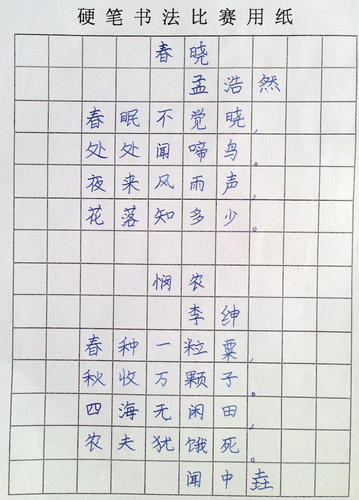 硬笔书法比赛用纸
春晓
孟浩然
春眠不觉晓,
处处闻啼鸟。
夜来风雨声,
花落知多少。
悯农
李绅
春种一粒粟,
秋收万颗子。
四海无闲田,
农夫犹饿死。
闻中垚